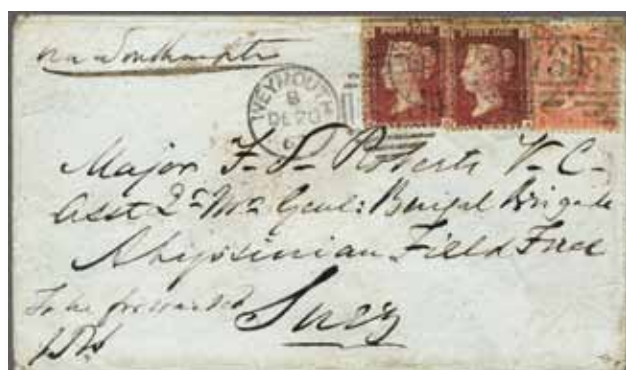 via Southampton
WEYMOUTH
8
DE 20
6
Major F. S. Roberts V-C-
Asst Qr Mr Genl: Bengal Brigade
Abyssinian Field Force
To be forwarded
Suez